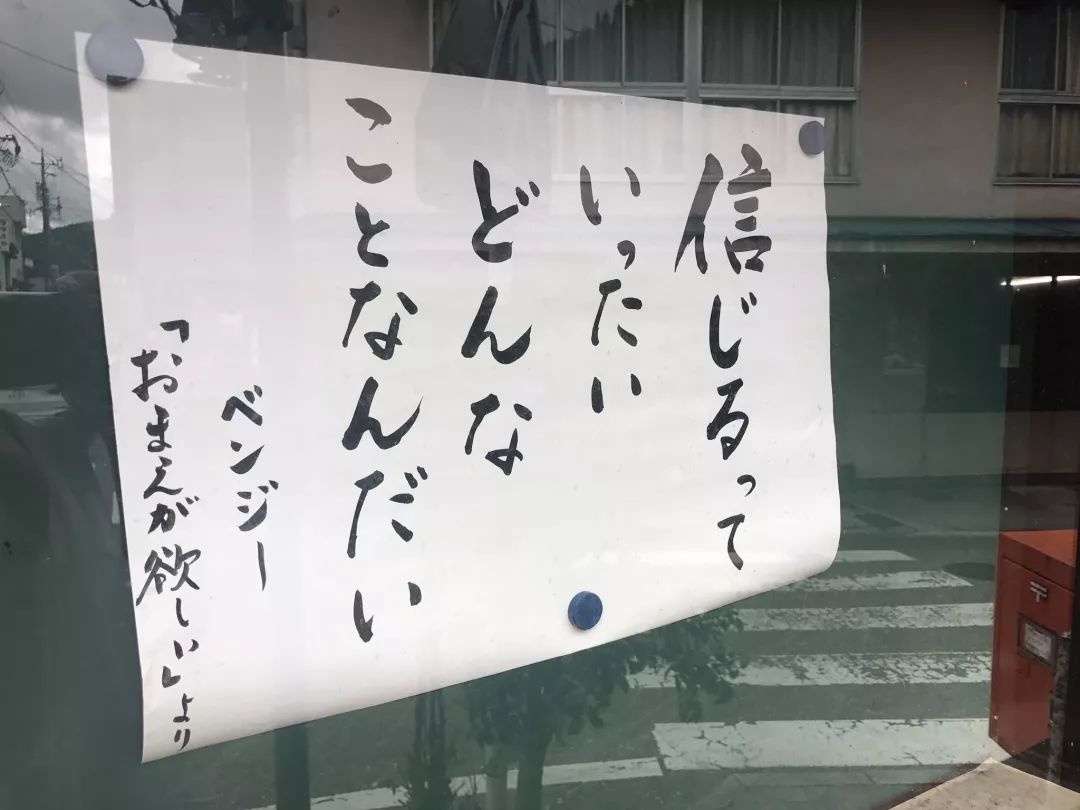 信じるって
いったい
どんな
ことなんだい
ベンジー
「おまえが欲しい」より
〒